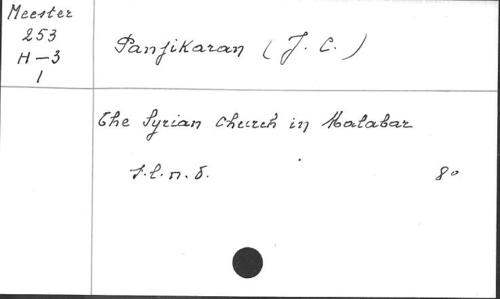 Meester
253
H-3
1
Panjikaran (J. C.)
The Syrian Church in Malabar
s.l.n.d. 8°